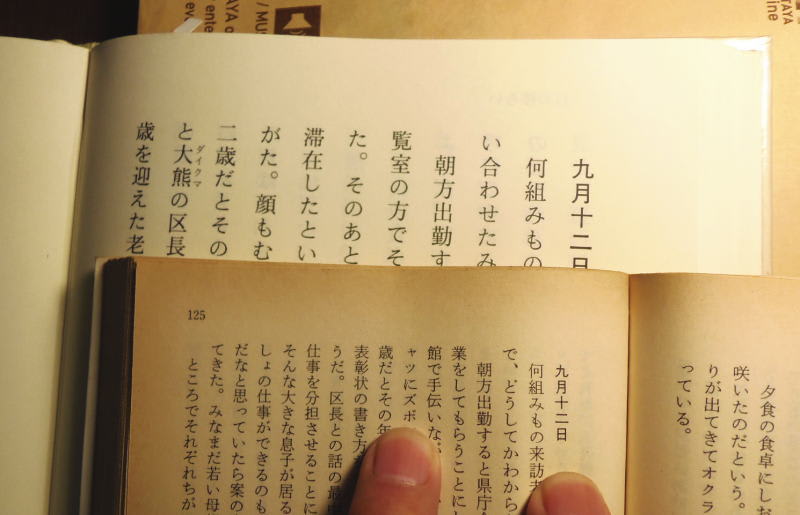 九月十二日
何組みもの
い合わせたみ
朝方出勤す
覧室の方でそ
た。そのあと
滞在したとい
がた。顔もむ
二歳だとその
と大熊の区長
ダイクマ
歳を迎えた老
夕食の食卓にしお
咲いたのだという。
りが出てきてオクラ
っている。
125
九月十二日
何組みもの来訪
で、どうしてかわから
朝方出勤すると県庁
業をしてもらうことに
館で手伝いな
ャッにズボ
歳だとその年
表彰状の書き方
うだ。区長との話の最
仕事を分担させることに
そんな大きな息子が居る
しょの仕事ができるのも
だなと思っていたら案の
てきた。みなまだ若い母
ところでそれぞれちが